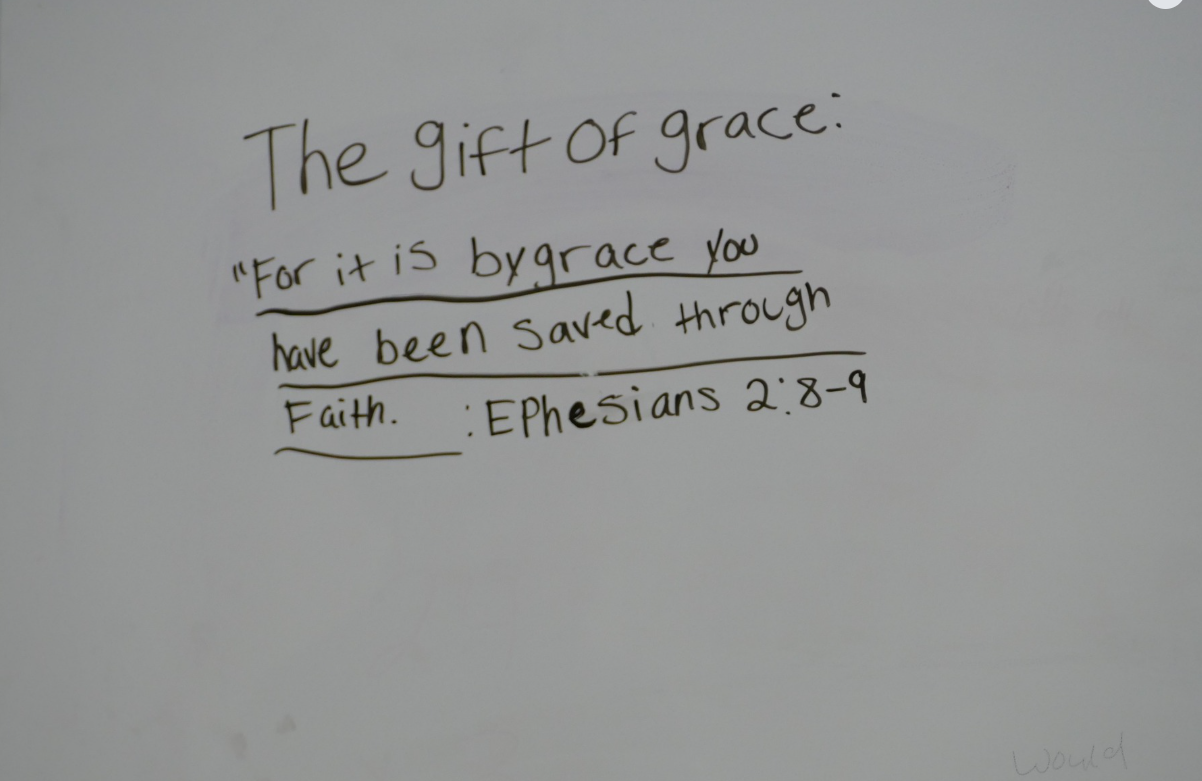 The gift of grace:
"For it is by grace you
have been saved through
Faith. : EPhesians 2:8-9
Would